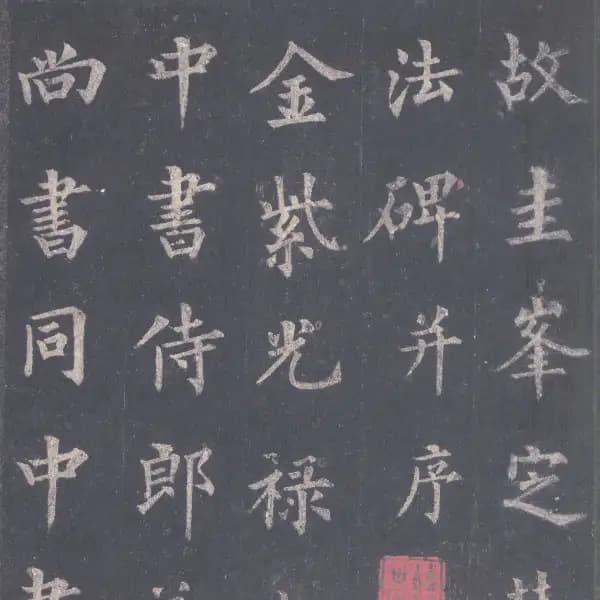 故圭峯定
法碑并序
金紫光祿
中書侍郎
尚書同中書